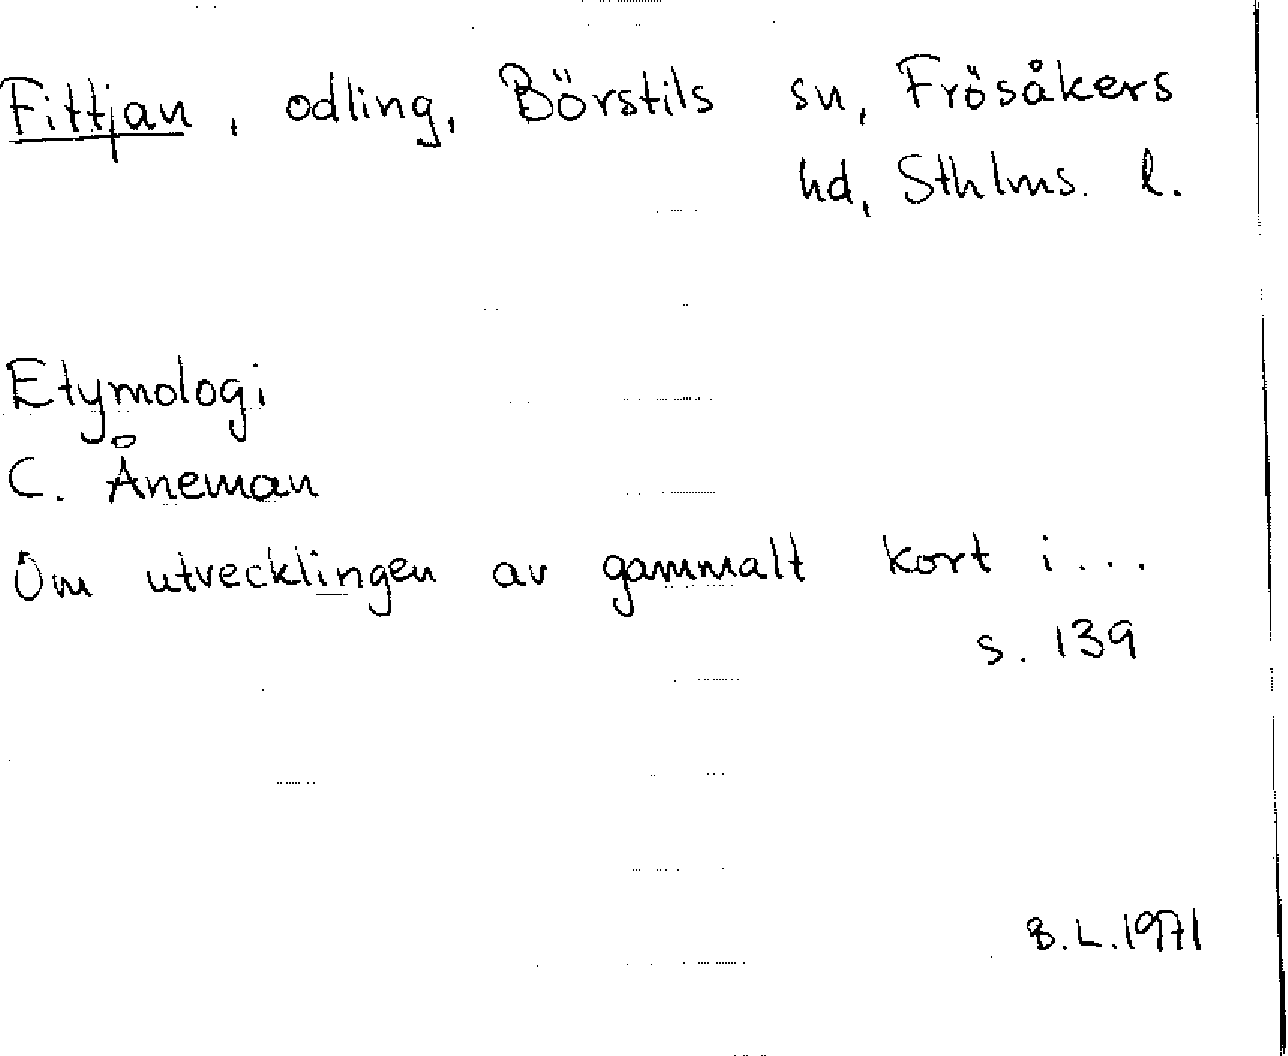 Fittjan, odling, Börstils sn, Frösåkers
hd, Sthlms. l.
Etymologi
C. Åneman
Om utvecklingen av gammalt kort i...
s. 139
B.L.1971